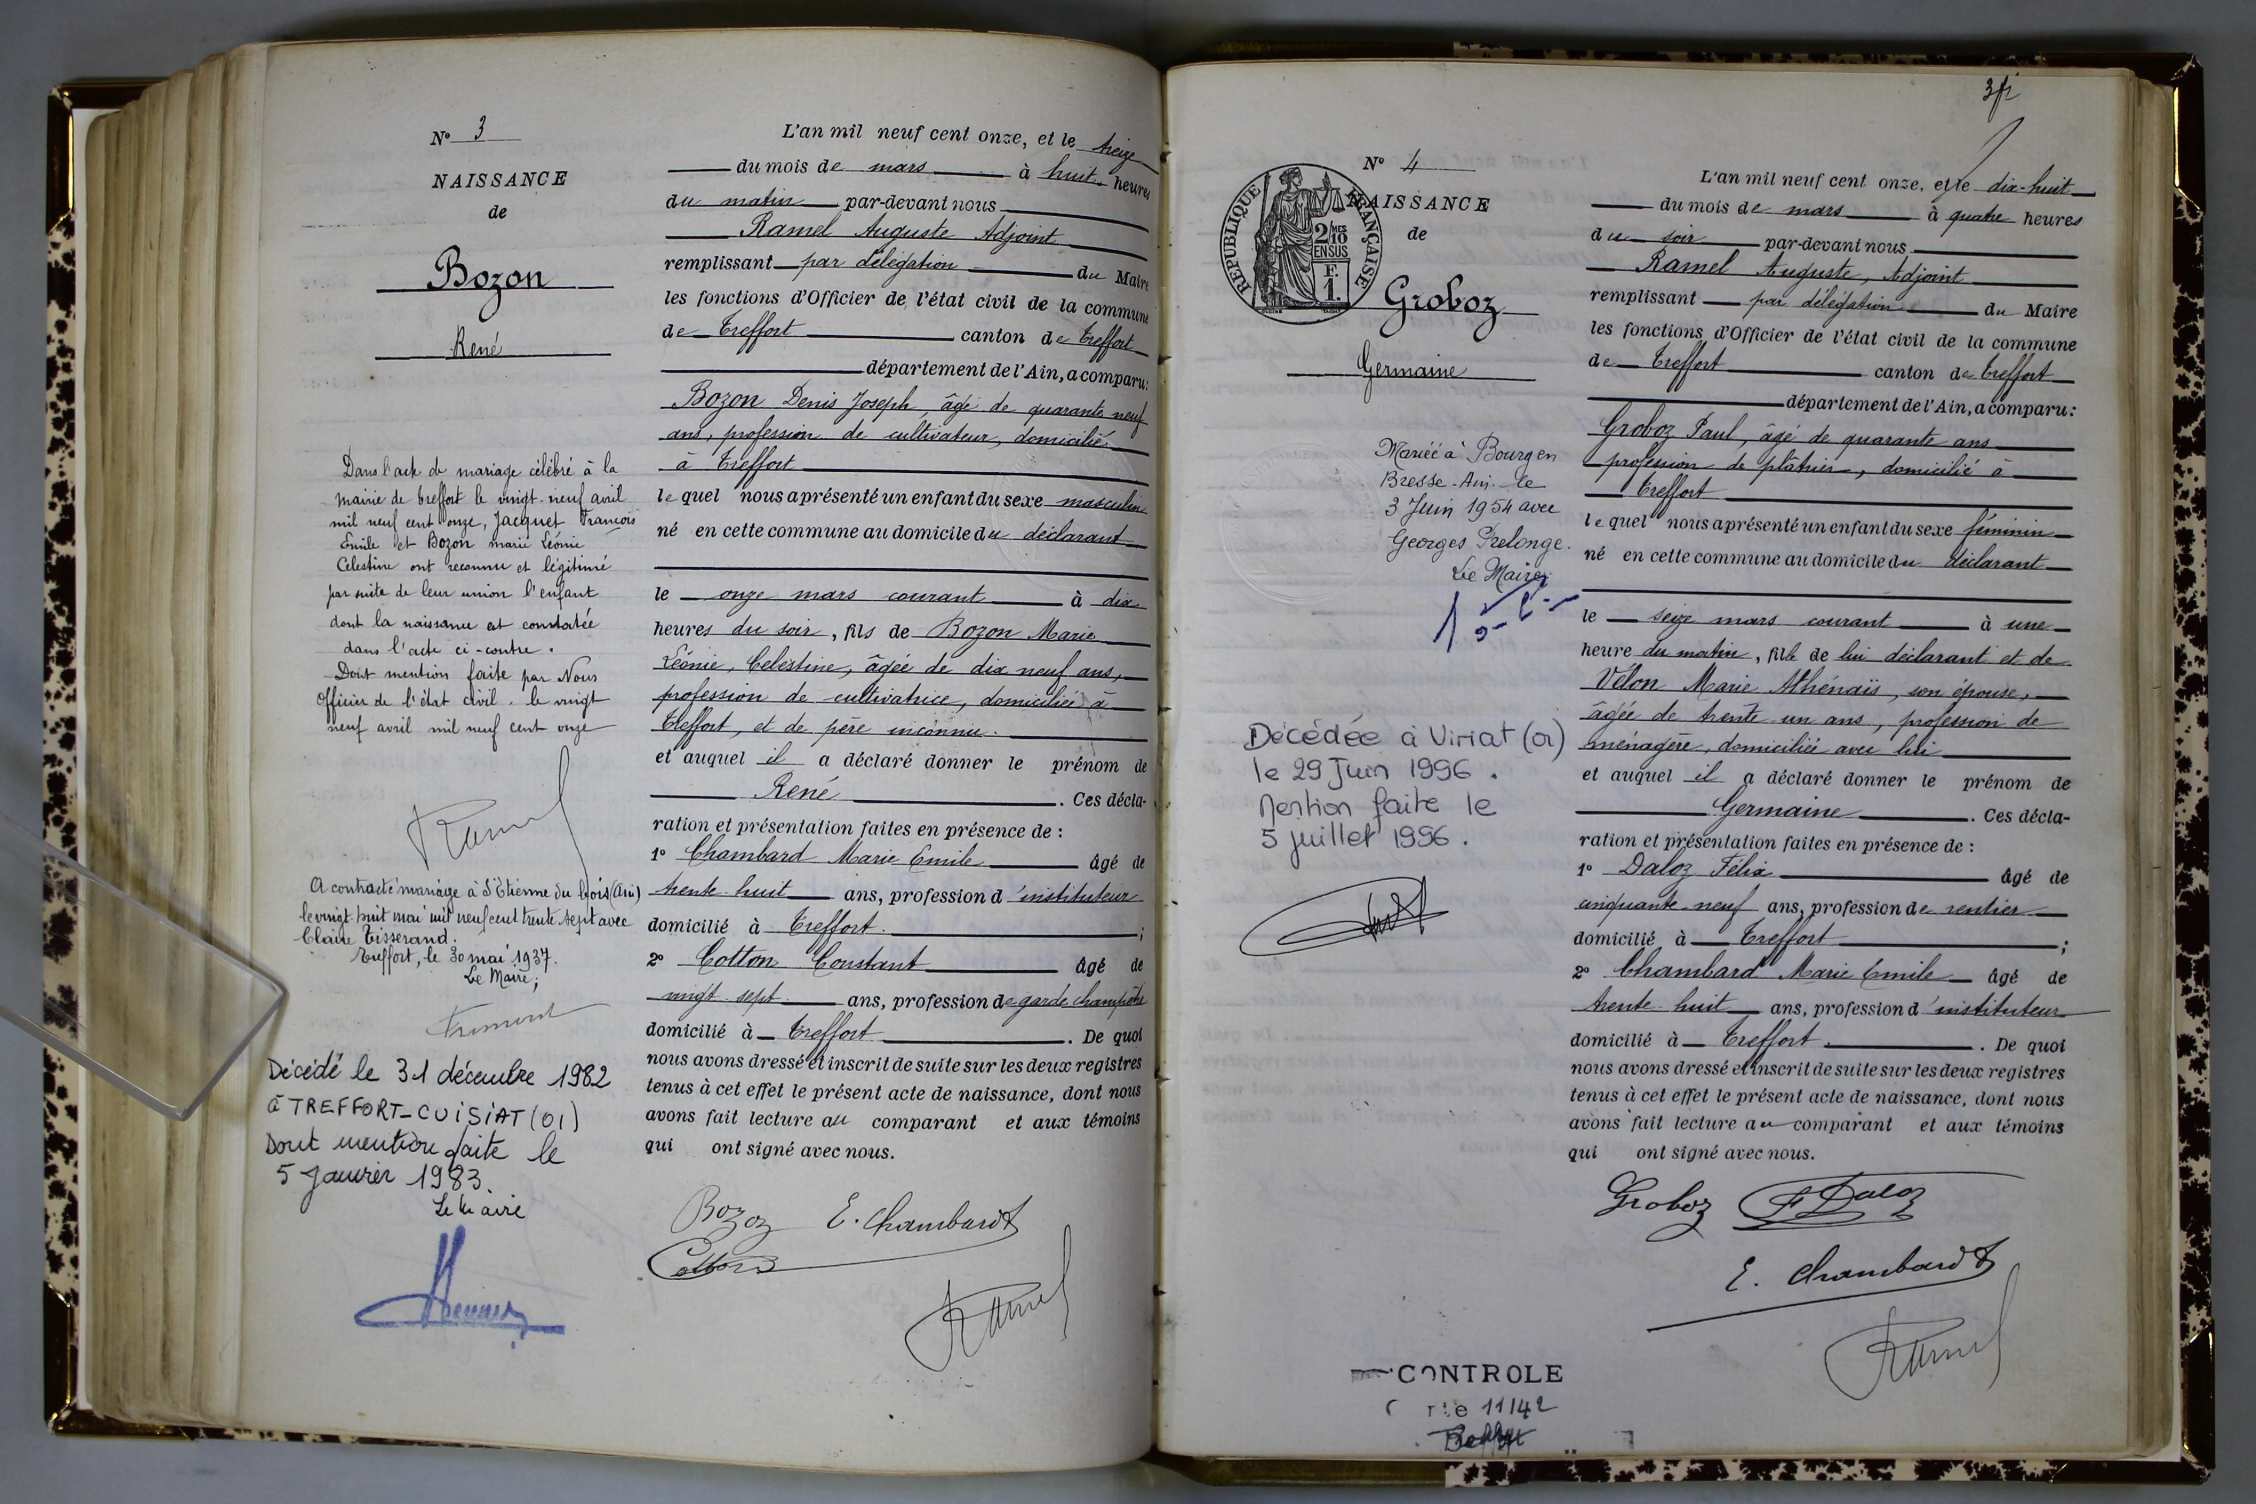 N° 3
NAISSANCE
de
Bozon
René
Dans l'acte de mariage célébré à la
mairie de Treffort le vingt-neuf avril
mil neuf cent onze, Jacquet François
Emile et Bozon marie Léonie
Célestine ont reconnu et légitimé
par suite de leur union l'enfant
dont la naissance est constatée
dans l'acte ci-contre.
Dont mention faite par Nous
Officier de l'état civil. le vingt
neuf avril mil neuf cent onze
Ramel
A contracté mariage à St Etienne du bois (Ain)
le vingt huit mai mil neuf cent trente sept avec
Claire Tisserand.
Treffort, le 30 mai 1937.
Le Maire;
Décédé le 31 décembre 1982
à TREFFORT-CUISIAT (01)
Dont mention faite le
5 Janvier 1983.
Le Maire
L'an mil neuf cent onze, et le treize
du mois de mars à huit heures
du matin par-devant nous
Ramel Auguste Adjoint
remplissant par délégation du Maire
les fonctions d'Officier de l'état civil de la commune
de Treffort canton de Treffort
département de l'Ain, a comparu:
Bozon Denis Joseph, âgé de quarante neuf
ans, profession de cultivateur, domicilié
à Treffort
lequel nous a présenté un enfant du sexe masculin
né en cette commune au domicile du déclarant
le onze mars courant à dix
heures du soir, fils de Bozon Marie
Léonie, Célestine, âgée de dix neuf ans,
profession de cultivatrice, domiciliée à
Treffort, et de père inconnu.
et auquel il a déclaré donner le prénom de
René . Ces décla-
ration et présentation faites en présence de :
1° Chambard Marie Emile âgé de
trente-huit ans, profession d'instituteur
domicilié à Treffort. ;
2° Cotton Constant âgé de
vingt-sept ans, profession de garde champêtre
domicilié à Treffort . De quoi
nous avons dressé et inscrit de suite sur les deux registres
tenus à cet effet le présent acte de naissance, dont nous
avons fait lecture au comparant et aux témoins
qui ont signé avec nous.
Bozon E. Chambard
Cotton
Ramel
3
N° 4
NAISSANCE
de
RÉPUBLIQUE FRANÇAISE
2/10
EN SUS
F.
1.
Groboz
Germaine
Mariée à Bourg en
Bresse - Ain - le
3 Juin 1954 avec
Georges Prelonge.
Le Maire
Décédée à Viriat (01)
le 29 Juin 1996.
Mention faite le
5 juillet 1996.
L'an mil neuf cent onze, et le dix-huit
du mois de mars à quatre heures
du soir par-devant nous
Ramel Auguste, Adjoint
remplissant par délégation du Maire
les fonctions d'Officier de l'état civil de la commune
de Treffort canton de Treffort
département de l'Ain, a comparu:
Groboz Paul, âgé de quarante ans
profession de plâtrier, domicilié à
Treffort
lequel nous a présenté un enfant du sexe féminin
né en cette commune au domicile du déclarant
le seize mars courant à une
heure du matin, fille de lui déclarant et de
Vélon Marie Athénaïs, son épouse,
âgée de trente-un ans, profession de
ménagère, domiciliée avec lui
et auquel il a déclaré donner le prénom de
Germaine . Ces décla-
ration et présentation faites en présence de :
1° Daloz Félix âgé de
cinquante-neuf ans, profession de rentier
domicilié à Treffort ;
2° Chambard Marie Emile âgé de
trente huit ans, profession d'instituteur
domicilié à Treffort. . De quoi
nous avons dressé et inscrit de suite sur les deux registres
tenus à cet effet le présent acte de naissance, dont nous
avons fait lecture au comparant et aux témoins
qui ont signé avec nous.
Groboz F Daloz
E. Chambard
Ramel
CONTROLE
11142